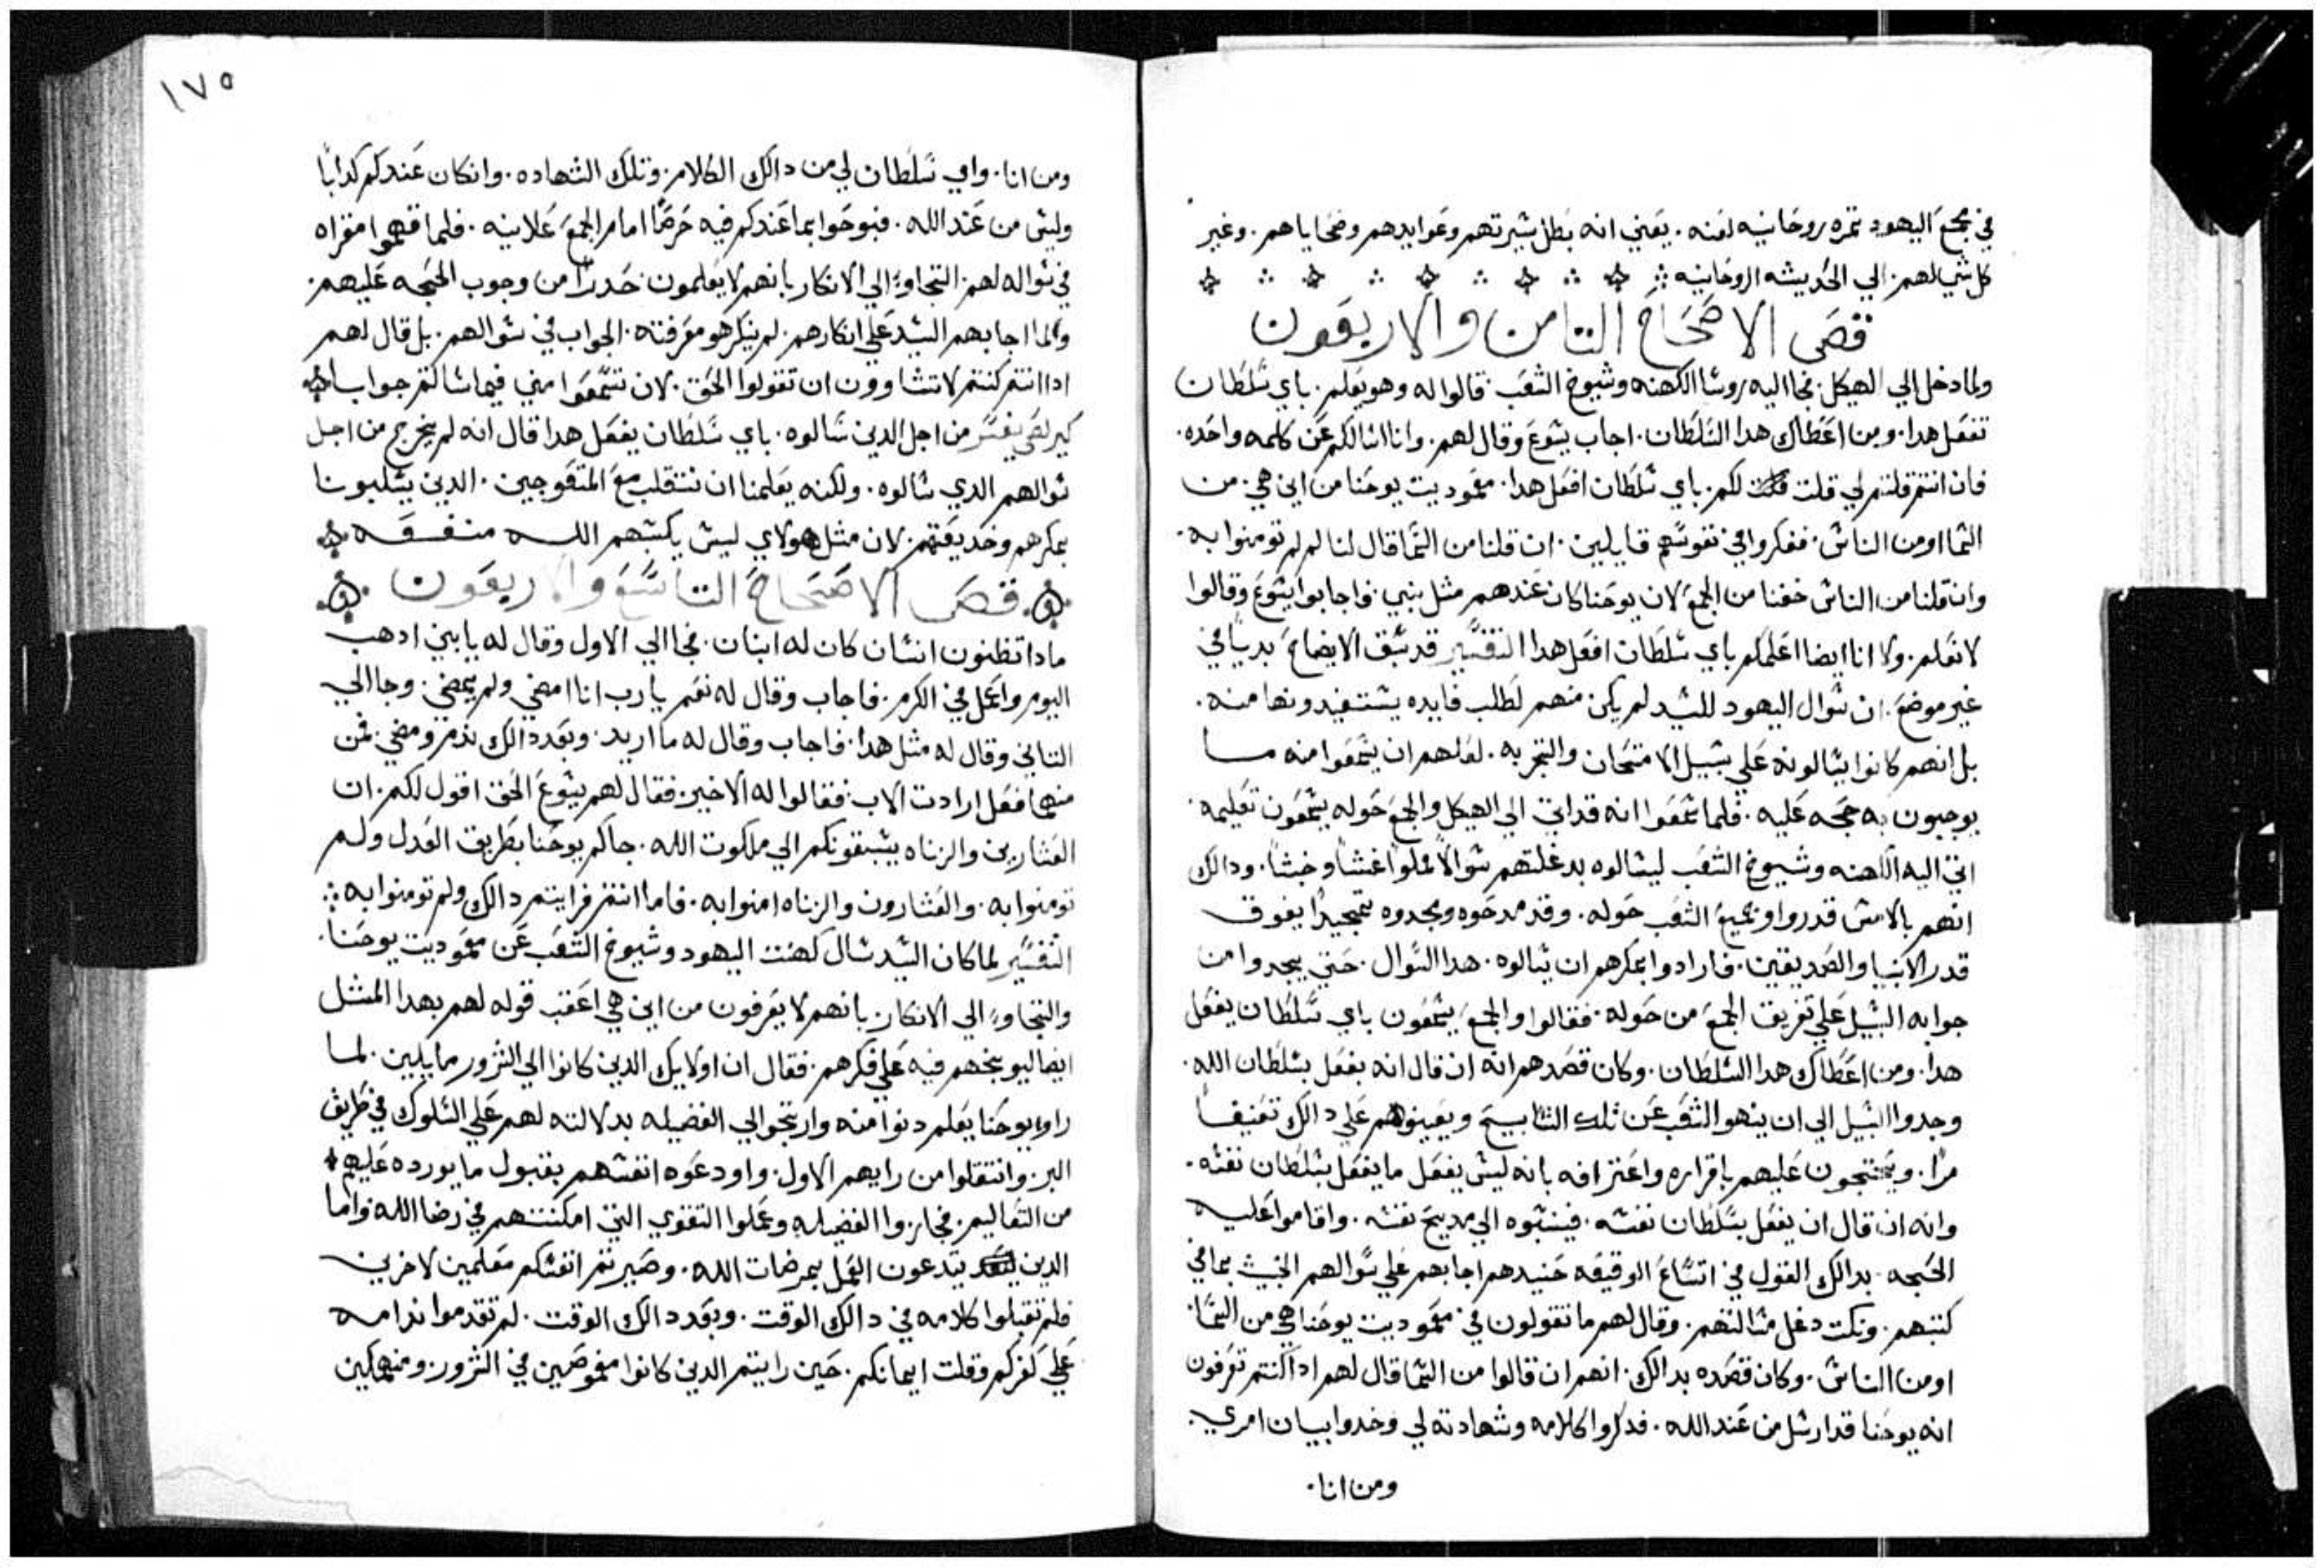 في مجمع اليهود ثمره روحانيه لعنه. يعني انه بطل سيرتهم وعوايدهم وضحاياهم. وغير
كل شي لهم. الي الحديثه الروحانيه
فصل الاصحاح التامن والاربعون
ولما دخل الي الهيكل. فجا اليه روسا الكهنه وشيوخ الشعب. قالوا له وهو يعلم. باي سلطان
تفعل هدا. ومن اعطاك هدا السلطان. اجاب يسوع وقال لهم. وانا اسالكم عن كلمه واحده.
فان انتم قلتم لي قلت لكم. باي سلطان افعل هدا. معموديت يوحنا من اين هي. من
السما او من الناس. ففكروا في نفوسهم قايلين. ان قلنا من السما قال لنا لم لم تومنوا به.
وان قلنا من الناس خفنا من الجمع لان يوحنا كان عندهم مثل نبي. فاجابوا يسوع وقالوا
لا نعلم. ولا انا ايضا اعلمكم باي سلطان افعل هدا التفسير قد سبق الايضاح بديا في
غير موضع. ان سوال اليهود للسيد لم يكن منهم لطلب فايده يستفيدونها منه.
بل انهم كانوا يسالونه علي سبيل الامتحان والتجربه. لعلهم ان يسمعوا منه ما
يوجبون به حجه عليه. فلما سمعوا انه قد اتي الي الهيكل والجمع حوله يسمعون تعليمه.
اتي اليه الكهنه وشيوخ الشعب ليسالوه بدغلتهم سوالا مملوا غشا وخبثا. ودالك
انهم بالامس قد راوا جميع الشعب حوله. وقد مدحوه ومجدوه تمجيدا يفوق
قدر الانبيا والصديقين. فارادوا بمكرهم ان يسالوه. هدا السوال. حتي يجدوا من
جوابه السبيل علي تفريق الجمع من حوله. فقالوا والجمع يسمعون باي سلطان يفعل
هدا. ومن اعطاك هدا السلطان. وكان قصدهم انه ان قال انه يفعل بسلطان الله.
وجدوا السبيل الي ان ينهوا الشعب عن تلك التسابيح ويعينوهم علي دالك تعنيفا
مرا. ويحتجون عليهم باقراره واعترافه بانه ليس يفعل ما يفعل بسلطان نفسه.
وانه ان قال ان يفعل بسلطان نفسه. فينسبوه الي مديح نفسه. واقاموا عليه
الحجه. بدالك القول في اتساع الوقيعه حينيد هم اجابهم علي سوالهم الخبيث بما في
كتبهم. ونكت دغل مسالتهم. وقال لهم ما تقولون في معموديت يوحنا هي من السما.
او من الناس. وكان قصده بدالك. انهم ان قالوا من السما قال لهم ادا كنتم تعرفون
انه يوحنا قد ارسل من عند الله. فدكروا كلامه وشهادته لي وخدوا بيان امري.
ومن انا.
١٧٥
ومن انا. واي سلطان لي من دالك الكلام. وتلك الشهاده. وان كان عندكم كدابا
وليس من عند الله. فبوحوا بما عندكم فيه حرصا امام الجمع علانيه. فلما فهموا مغزاه
في سواله لهم. التجاوا الي الانكار بانهم لا يعلمون حدرا من وجوب الحجه عليهم.
ولما اجابهم السيد علي انكارهم. لم ينكر هو معرفته. الجواب في سوالهم. بل قال لهم
ادا انتم كنتم لا تشاوون ان تقولوا الحق. لان تسمعوا مني فيما سالتم جوابا
كيرلص يفسر من اجل الدين سالوه. باي سلطان يفعل هدا قال انه لم يخرج من اجل
سوالهم الدي سالوه. ولكنه يعلمنا ان ننتقلب مع المتعوجين. الدين يسلبونا
بمكرهم وخديعتهم. لان مثل هولاي ليس يكسبهم الله منفعه
فصل الاصحاح التاسع والاربعون
مادا تظنون انسان كان له ابنان. فجا الي الاول وقال له يا بني ادهب
اليوم واعمل في الكرم. فاجاب وقال له نعم يا رب انا امضي ولم يمضي. وجا الي
التاني وقال له مثل هدا. فاجاب وقال له ما اريد. وبعد دالك ندم ومضي. فمن
منهما فعل ارادت الاب. فقالوا له الاخير. فقال لهم يسوع الحق اقول لكم. ان
العشارين والزناه يسبقونكم الي ملكوت الله. جاكم يوحنا بطريق العدل ولم
تومنوا به. والعشارون والزناه امنوا به. فاما انتم فرايتم دالك ولم تومنوا به
التفسير لما كان السيد سال كهنت اليهود وشيوخ الشعب عن معموديت يوحنا.
والتجاوا الي الانكار. بانهم لا يعرفون من اين هي اعقب قوله لهم بهدا المثل
ايضا ليوبخهم فيه علي فكرهم. فقال ان اولايك الدين كانوا الي الشرور مايلين. لما
راوا يوحنا يعلم دنوا منه وارتجوا الي الفضيله بدلالته لهم علي السلوك في طريق
البر. وانتقلوا من رايهم الاول. واودعوه انفسهم بقبول ما يورده عليهم
من التعاليم. فحازوا الفضيله وعملوا التقوي التي امكنتهم في رضا الله واما
الدين يتدعون العمل بمرضات الله. وصيرتم انفسكم معلمين لاخرين
فلم تقبلوا كلامه في دالك الوقت. وبعد دالك الوقت. لم تقدموا ندامه
علي كفركم وقلت ايمانكم. حين رايتم الدين كانوا مغموصين في الشرور. ومنهمكين